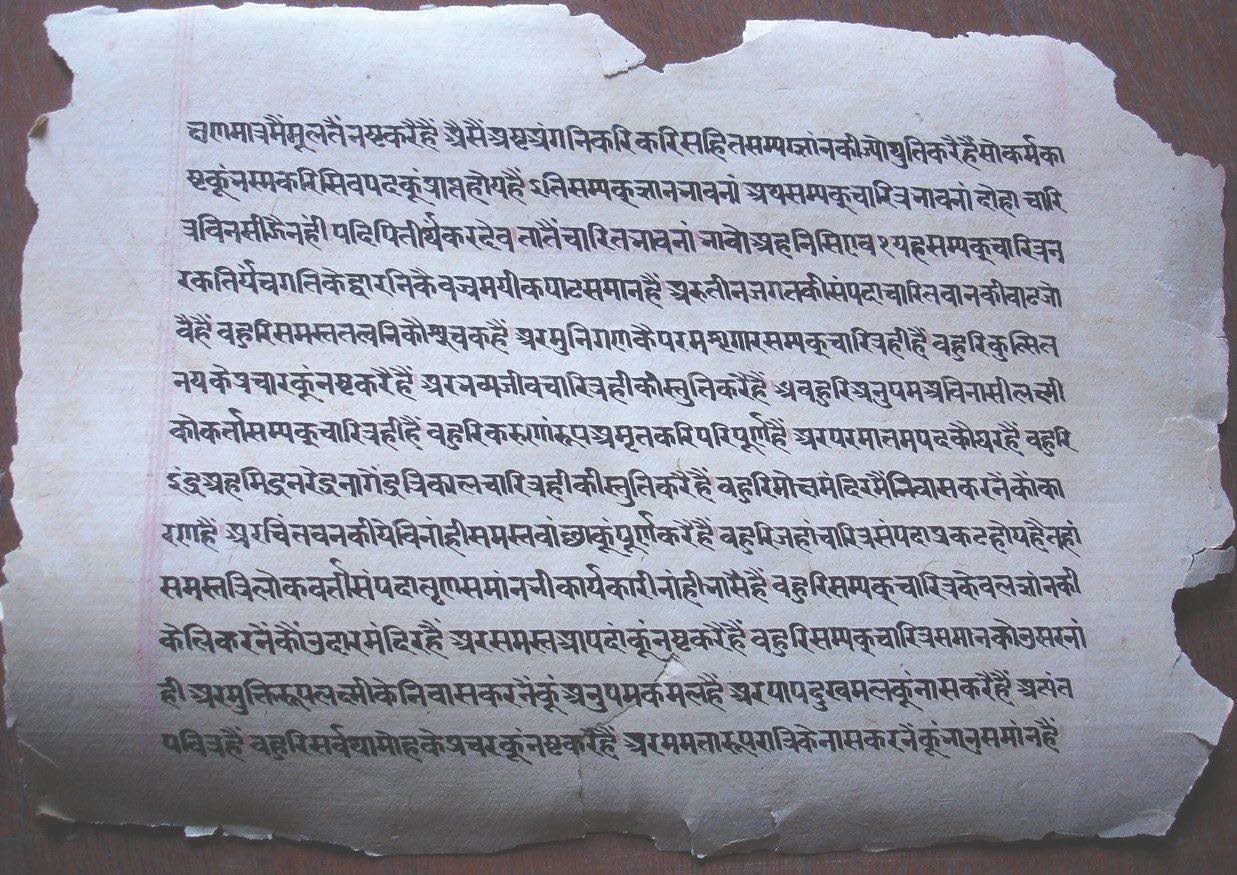 क्षणमात्रमैंमूलतैंनष्टकरैहैं अैसैंअष्टअंगनिकरिकरिसहितसम्यग्ज्ञांनकीजोथुतिकरैहैंसोकर्मका
ष्टकूंनस्मकरिसिवपदकूंप्राप्तहोयहैं ऽतिसम्यक्ज्ञाननावनां अथसम्यक्चारित्रनावनां दोहा चारि
त्रविनसीझैनहीं पदिपितीर्थकरदेव तातैंचारितनावनां नावोअहनिसिएव १ यहसम्यक्चारित्रन
रकतिर्यंचगतिकेद्वारनिकैवज्रमयीकपाटसमानहैं अरुतीनजगतकीसंपदाचारितवानकीवाटजो
वैहैं वहुरिसमस्ततत्वनिकौश्रुचकहैं अरमुनिगणकैपरमशृगारसम्यक्चारित्रहीहैं वहुरिकुत्सित
नयकेप्रचारकूंनष्टकरैहैं अरनव्यजीवचारित्रहीकीस्तुतिकरैहैं अवहुरिअनुपमअविनासीलक्ष्मी
कोकर्तासम्यक्चारित्रहीहैं वहुरिकरुणांरूपअमृतकरिपरिपूर्णहैं अरपरमातमपदकौंधरहैं वहुरि
इंद्रअहमिंद्रनरेंद्रनागेंद्रत्रिकालचारित्रहीकीस्तुतिकरैहैं वहुरिमोक्षमंदिरमैंनिवासकरनेंकौंका
रणहैं अरचिंतवनकीयेविनांहीसमस्तवांछाकूंपूर्णकरैहैं वहुरिजहांचारित्रसंपदाप्रकटहोयहैतहां
समस्तत्रिलोकवर्तीसंपदातृणसमांननीकार्यकारीनांहीनासैहैं वहुरिसम्यक्चारित्रकेवलज्ञांनकी
केलिकरनेंकौंउदारमंदिरहैं अरसमस्तआपदांकूंनष्टकरैहैं वहुरिसम्यक्चारित्रसमानकोउसरनां
ही अरमुक्तिरूपलक्ष्मीकेनिवासकरनेंकूंअनुपमकमलहैं अरपापदुखमलकूंनासकरैहैं अत्यंत
पवित्रहैं वहुरिसर्वथामोहकेप्रचरकूंनष्टकरैहैं अरममतारूपरात्रिकेनासकरनेंकूंनानुसमांनहैं